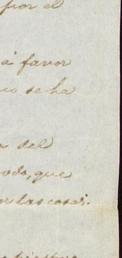 por el
á favor
no se ha
del
odo, que
or las cosas.